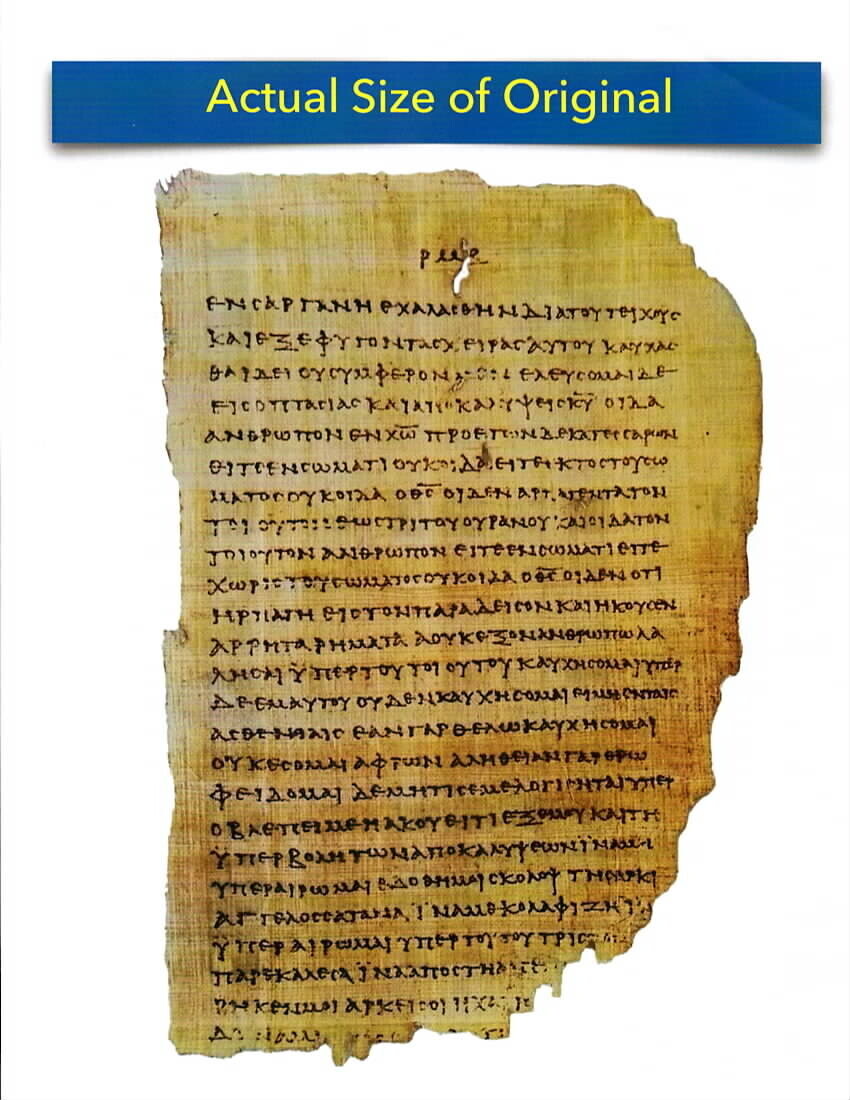 Actual Size of Original
ΕΝ ϹΑΡΓΑΝΗ ΕΧΑΛΑϹΘΗΝ ΔΙΑ ΤΟΥ ΤΕΙΧΟΥϹ
ΚΑΙ ΕΞΕΦΥΓΟΝ ΤΑϹ ΧΕΙΡΑϹ ΑΥΤΟΥ ΚΑΥΧΑϹ
ΘΑΙ ΔΕΙ ΟΥ ϹΥΜΦΕΡΟΝ ΕΛΕΥϹΟΜΑΙ ΔΕ
ΕΙϹ ΟΠΤΑϹΙΑϹ ΚΑΙ ΑΠΟΚΑΛΥΨΕΙϹ Κ̅Υ̅ ΟΙΔΑ
ΑΝΘΡΩΠΟΝ ΕΝ Χ̅Ω̅ ΠΡΟ ΕΤΩΝ ΔΕΚΑΤΕϹϹΑΡΩΝ
ΕΙΤΕ ΕΝ ϹΩΜΑΤΙ ΟΥΚ ΟΙΔΑ ΕΙΤΕ ΕΚΤΟϹ ΤΟΥ ϹΩ
ΜΑΤΟϹ ΟΥΚ ΟΙΔΑ Ο Θ̅Ϲ̅ ΟΙΔΕΝ ΑΡΠΑΓΕΝΤΑ ΤΟΝ
ΤΟΙΟΥΤΟΝ ΕΩϹ ΤΡΙΤΟΥ ΟΥΡΑΝΟΥ ΚΑΙ ΟΙΔΑ ΤΟΝ
ΤΟΙΟΥΤΟΝ ΑΝΘΡΩΠΟΝ ΕΙΤΕ ΕΝ ϹΩΜΑΤΙ ΕΙΤΕ
ΧΩΡΙϹ ΤΟΥ ϹΩΜΑΤΟϹ ΟΥΚ ΟΙΔΑ Ο Θ̅Ϲ̅ ΟΙΔΕΝ ΟΤΙ
ΗΡΠΑΓΗ ΕΙϹ ΤΟΝ ΠΑΡΑΔΕΙϹΟΝ ΚΑΙ ΗΚΟΥϹΕΝ
ΑΡΡΗΤΑ ΡΗΜΑΤΑ Α ΟΥΚ ΕΞΟΝ ΑΝΘΡΩΠΩ ΛΑ
ΛΗϹΑΙ ΫΠΕΡ ΤΟΥ ΤΟΙΟΥΤΟΥ ΚΑΥΧΗϹΟΜΑΙ ΥΠΕΡ
ΔΕ ΕΜΑΥΤΟΥ ΟΥΔΕΝ ΚΑΥΧΗϹΟΜΑΙ ΕΙ ΜΗ ΕΝ ΤΑΙϹ
ΑϹΘΕΝΙΑΙϹ ΕΑΝ ΓΑΡ ΘΕΛΩ ΚΑΥΧΗϹΟΜΑΙ
ΟΥΚ ΕϹΟΜΑΙ ΑΦΡΩΝ ΑΛΗΘΕΙΑΝ ΓΑΡ ΕΡΩ
ΦΕΙΔΟΜΑΙ ΔΕ ΜΗ ΤΙϹ ΕΜΕ ΛΟΓΙϹΗΤΑΙ ΥΠΕΡ
Ο ΒΛΕΠΕΙ ΜΕ Η ΑΚΟΥΕΙ ΤΙ ΕΞ ΕΜΟΥ ΚΑΙ ΤΗ
ΫΠΕΡΒΟΛΗ ΤΩΝ ΑΠΟΚΑΛΥΨΕΩΝ ΪΝΑ ΜΗ
ΥΠΕΡΑΙΡΩΜΑΙ ΕΔΟΘΗ ΜΟΙ ϹΚΟΛΟΨ ΤΗ ϹΑΡΚΙ
ΑΓΓΕΛΟϹ ϹΑΤΑΝΑ ΪΝΑ ΜΕ ΚΟΛΑΦΙΖΗ
ΫΠΕΡΑΙΡΩΜΑΙ ΥΠΕΡ ΤΟΥΤΟΥ ΤΡΙϹ
ΠΑΡΕΚΑΛΕϹΑ ΪΝΑ ΑΠΟϹΤΗ
ΡΗΚΕΝ ΜΟΙ ΑΡΚΕΙ ϹΟΙ Η ΧΑ